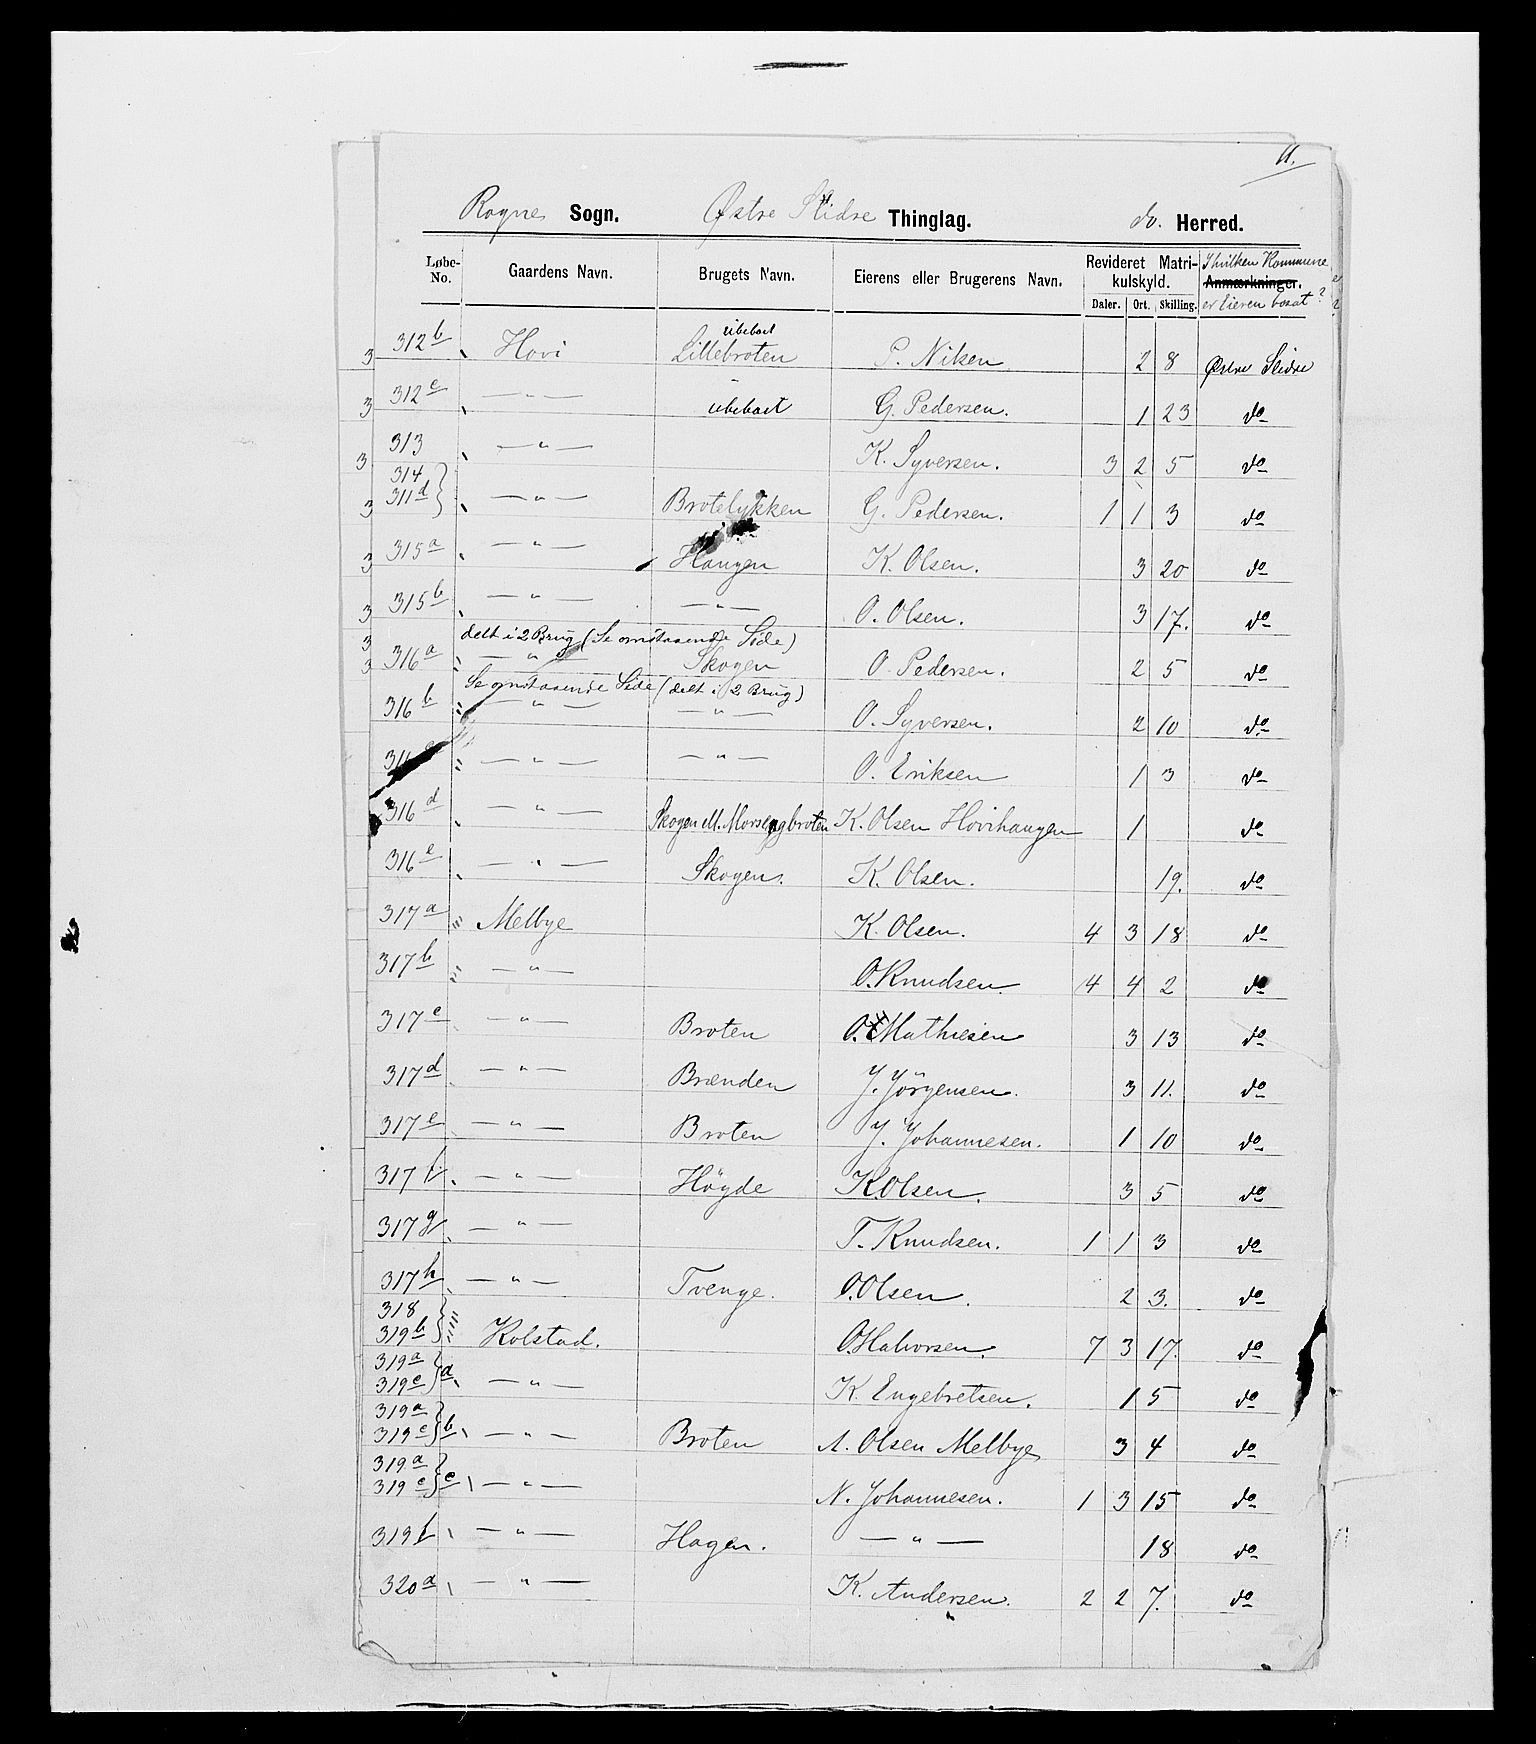 11.
Rogne Sogn. Østre Slidre Thinglag. do. Herred.
Løbe-No. Gaardens Navn. Brugets Navn. Eierens eller Brugerens Navn. Revideret Matrikulskyld. I hvilken Kommune
Anmærkninger.
Daler. Ort. Skilling. er Eieren bosat ?
ubeboet
3 312b Hovi Lillebroten P. Nilsen 2 8 Østre Slidre
3 312c — " — ubeboet G. Pedersen. 1 23 do
3 313 — " — K. Syversen. 3 2 5 do
314
3 311d } — " — Brotelykken G. Pedersen. 1 1 3 do
3 315a — " — Haugen K. Olsen. 3 20 do
3 315b — " — — " — O. Olsen. 3 17. do
3 delt i 2 Brug (Se omstaaende Side)
3 316a — " — Skogen O. Pedersen. 2 5 do
Se omstaaende Side (delt i 2 Brug)
316b — " — — " — O. Syversen. 2 10 do
— " — — " — O. Eriksen 1 3 do
316d — " — Skogen M. Morsengbroten K. Olsen Hovihaugen 1 do
316e — " — Skogen. K. Olsen. 19. do
317a Melbye K. Olsen. 4 3 18 do
317b — " — O. Knudsen. 4 4 2 do
317c — " — Broten O. Mathiesen 3 13 do
317d — " — Brænden J. Jörgensen. 3 11. do
317e — " — Broten J. Johannesen. 1 10 do
317f — " — Höyde K. Olsen. 3 5 do
317g — " — T. Knudsen. 1 1 3 do
317h — " — Tvenge. O. Olsen. 2 3. do
318
319b } Kolstad. O. Halvorsen. 7 3 17. do
319a
319c } a — " — K. Engebretsen. 1 5 do
319a
319c } b — " — Broten A. Olsen Melbye 3 4 do
319a
319c } c — " — N. Johannesen. 1 3 15 do
319f — " — Hagen. — " — 18 do
320a — " — K. Andersen. 2 2 7. do